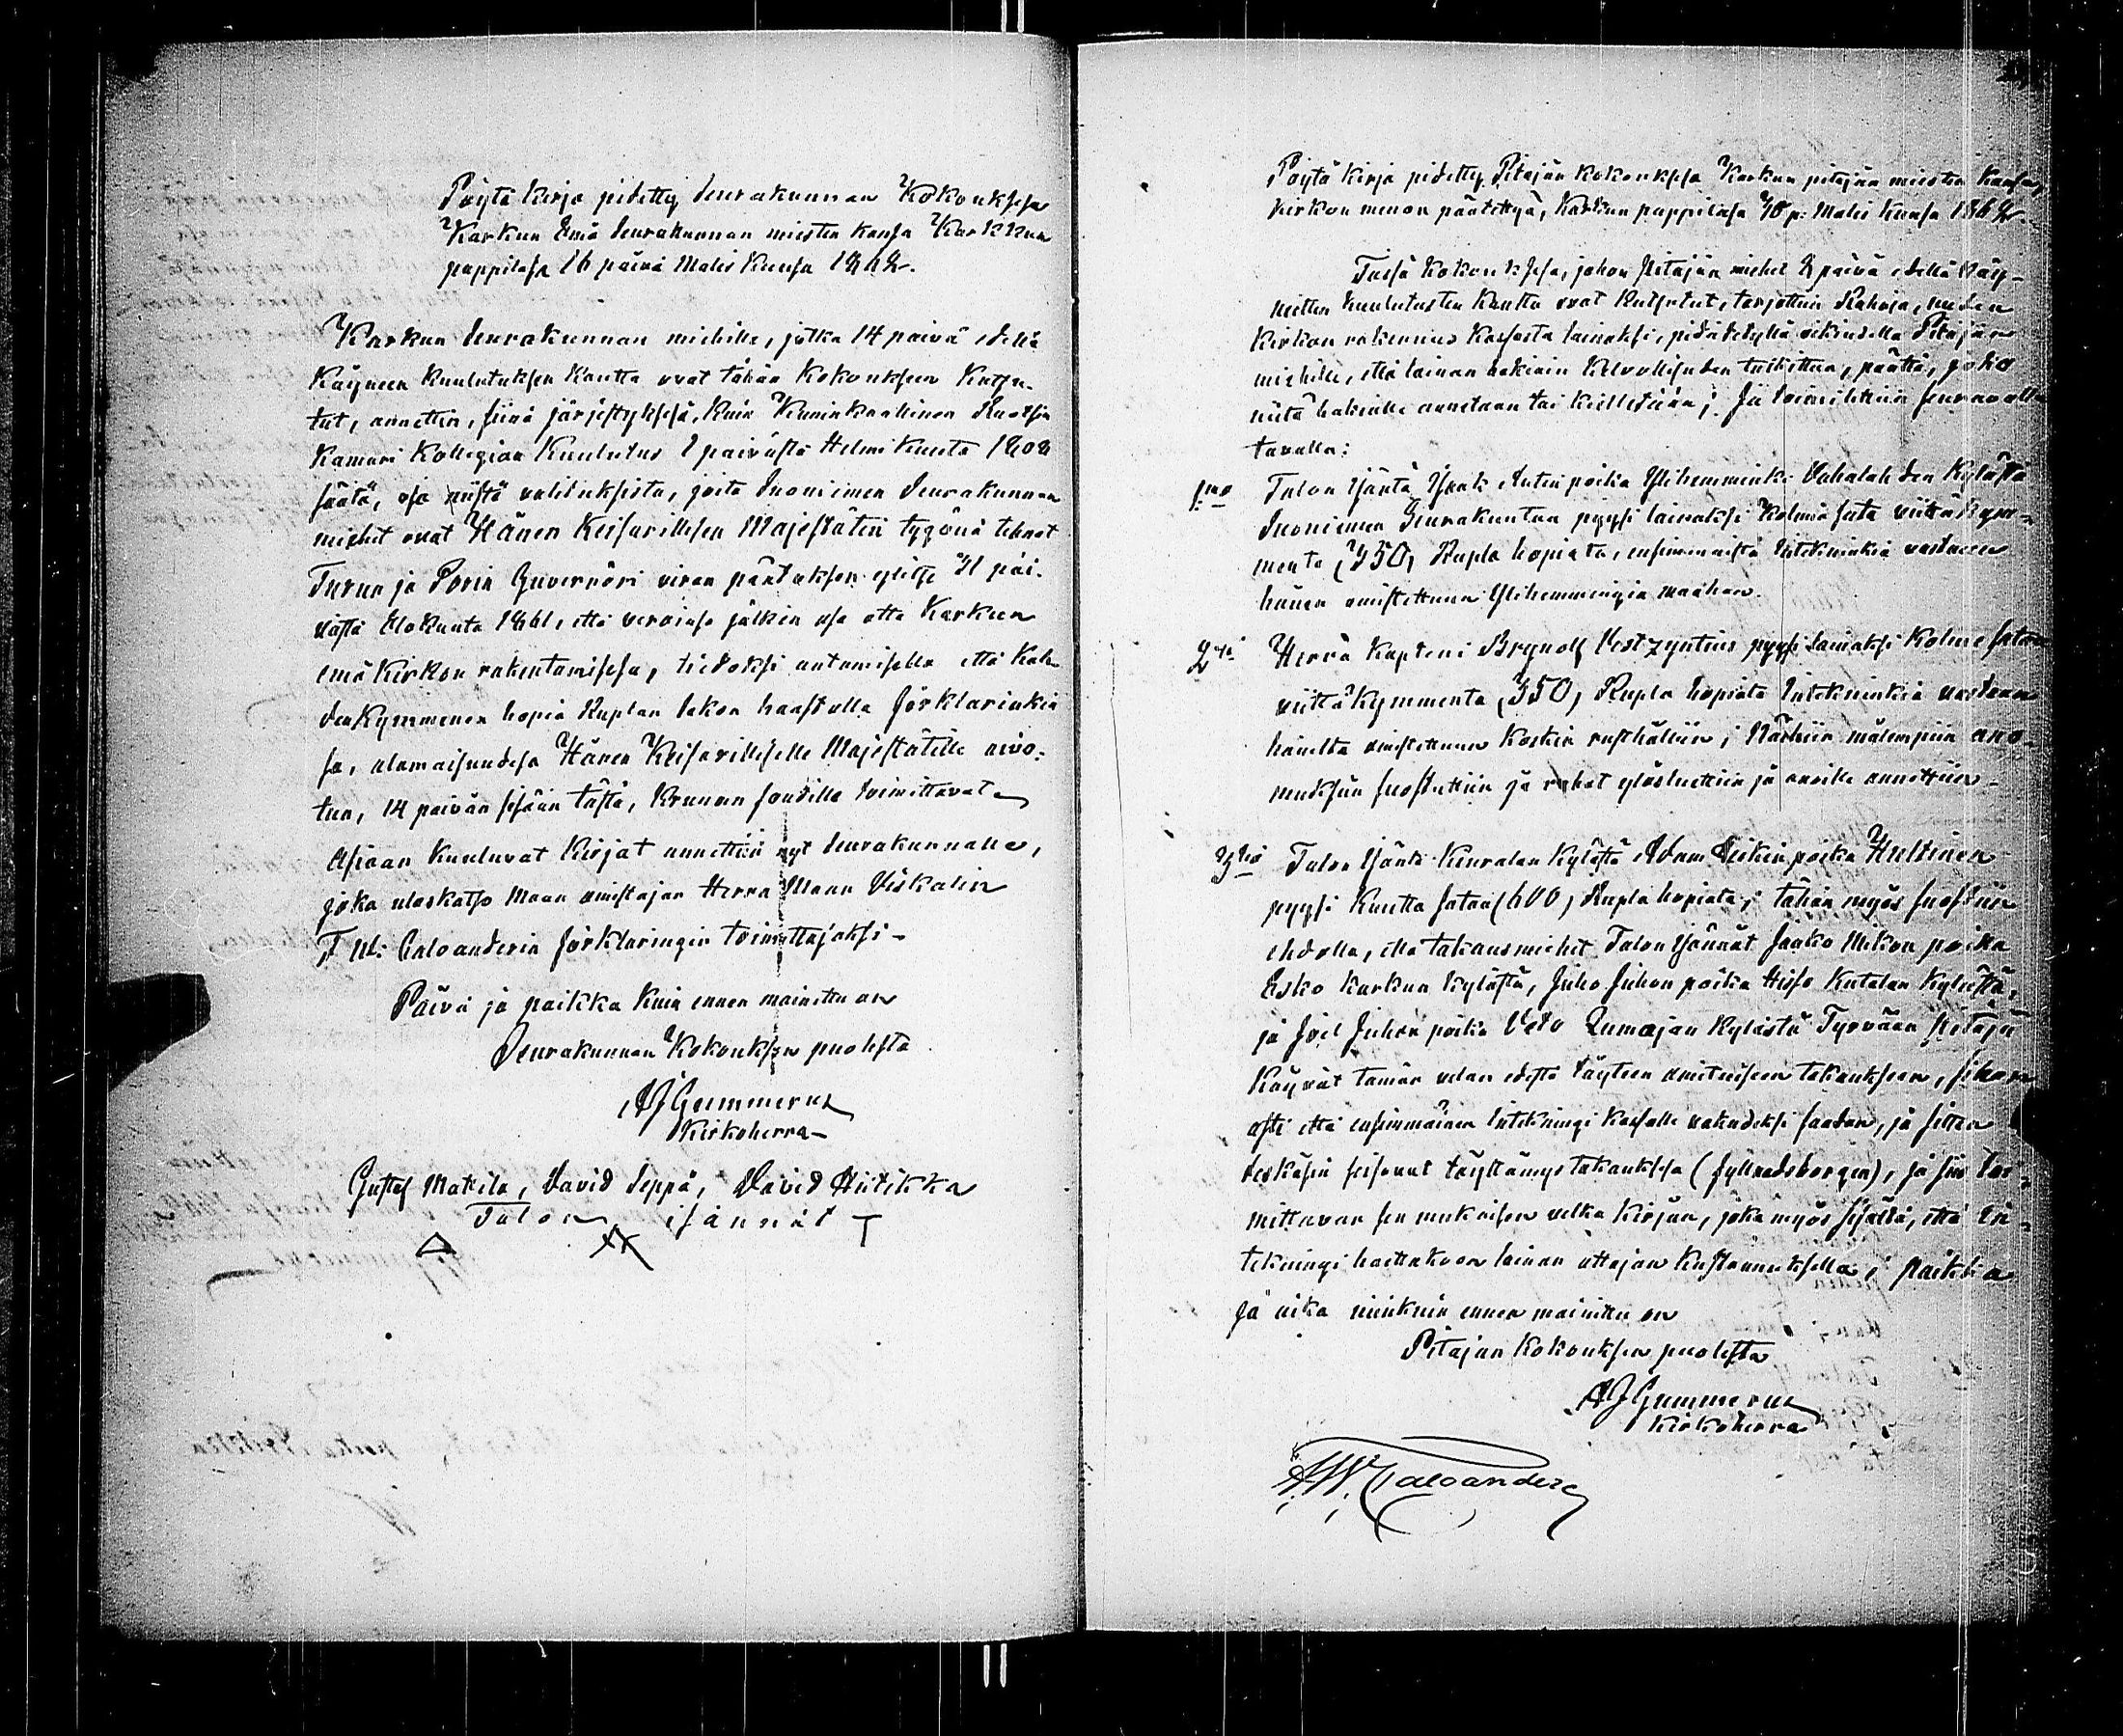 Pöytä kirja pidetty Seurakunnan Kokouksesa
Karkun Emä Seurakunnan miesten kansa Karkkun
pappilasa 16 päivä Malis Kuusa 1862.
Karkun Seurakunnan miehille, jotka 14 päivä edellä
Käyneen Kuulutuksen Kautta ovat tähän Kokouksen Kutsu-
tut, annettin, siinä järjestyksesä, Kuin Keninkaallinen Ruotsin
Kamari Kollegian Kuulutus 1 päivästä Helmi Kuuta 1808
säätä, osa niistä valituksista, joita Suoniemen Seurakunnan
miehet ovat Hänen Keisarillisen Majestätin tygönä tehnet
Turun ja Porin Guvernöri viran päätöksen ylitse 31 päi-
västä Elokuuta 1861, että veroinsa jälkin osa otta Karkun
emä Kirkon rakentamisesa, tiedoksi antamisella että Kah-
denkymmenen hopia Ruplan sakon haastolla förklarinkia
sa, alamaisuudesa Hänen Keisarilliselle Majestätille aivo-
tun, 14 päivän sisään tästä, Krunun foudille toimittavat
Asiaan kuuluvat Kirjat annettiin nyt Seurakunnalle,
joka uloskatso Maan omistajan Herra Maan Viskalin
F. W: Caloanderin förklaringin toimittajaksi -
Päivä ja paikka Kuin ennen mainittu on
Seurakunnan Kokouksen puolesta
AJ Gummerus
Kirkoherra -
Gustaf Makila, David Seppä, David Hiitikka
Talon isännät
Pöytä kirja pidetty Pitäjän kokouksesa Karkun pitäjän miesten kansa,
kirkon menon päätettyä, Karkun pappilasa p: Malis Kuusa 1862.
Tässä Kokouksesa, johon Pitäjän miehet päivä edellä käy-
neitten Kuulutusten Kautta ovat Kutsutut, tarjottiin Rahoja, uuden
Kirkon rakennus Kassasta lainaksi, pidätetyllä oikeudella Pitäjän
miehille, että lainan hakioin Kelvollisuden tutkittua, päättä, joko
niitä hakioille annetaan tai kielletään; Ja toimitettiin seuraavalla
tavalla:
1mo Talon isäntä Isaak Antin poika Ylihemminki Vahalahden Kylästä
Suoniemen Seurakuntaa pyysi lainaksi Kolmesata viittäkym-
menta (350) Rupla hopiata, ensimmäistä Intekninkiä vastaan
hänen omistettuun Ylihemmingin maahan.
2do Herra Kapteni Brynolf pyysi lainaksi Kolme sataa
viittäkymmenta (350) Rupla hopiata Inteknirkiä vastaan
häneltä omistettuun Koskin rusthålliin; Näihin mälempiin ano-
muksiin suostuttiin ja rahat ylösluettiin ja anoille annettiin -
3tio Talon isäntä Keuralan Kylästä Adam Heikin poika Hultinen
pyysi Kuutta sataa (600) Rupla hopiata; tähän myös suostiin
ehdolla, että takausmiehet Talon isännät Jaako Mikon poika
Esko Karkun Kylästä, Juho Juhon poika Hisso Kutalan Kylästä,
ja Joel Juhan poika Vato Kylästä Tyrvään Pitäjä
Käyvät tämän velan edestä täyteen omituiseen takaukseen, siihen
asti että ensimmäinen Intekningi Kassalle vakudeksi saadan, ja sitten
seisovat täyttämys takauksesa (fyllnadsborgen), ja sin toi-
mittavan sen mukaisen velka Kirjan, joka myös sisältä, että In-
tekningi haettakoon lainan ottajan Kustannuksella; paikka
ja aika niinkuin ennen mainittu on
Pitäjän Kokouksen puolesta
AJ Gummerus
Kirkoherra
F.W. Caloander